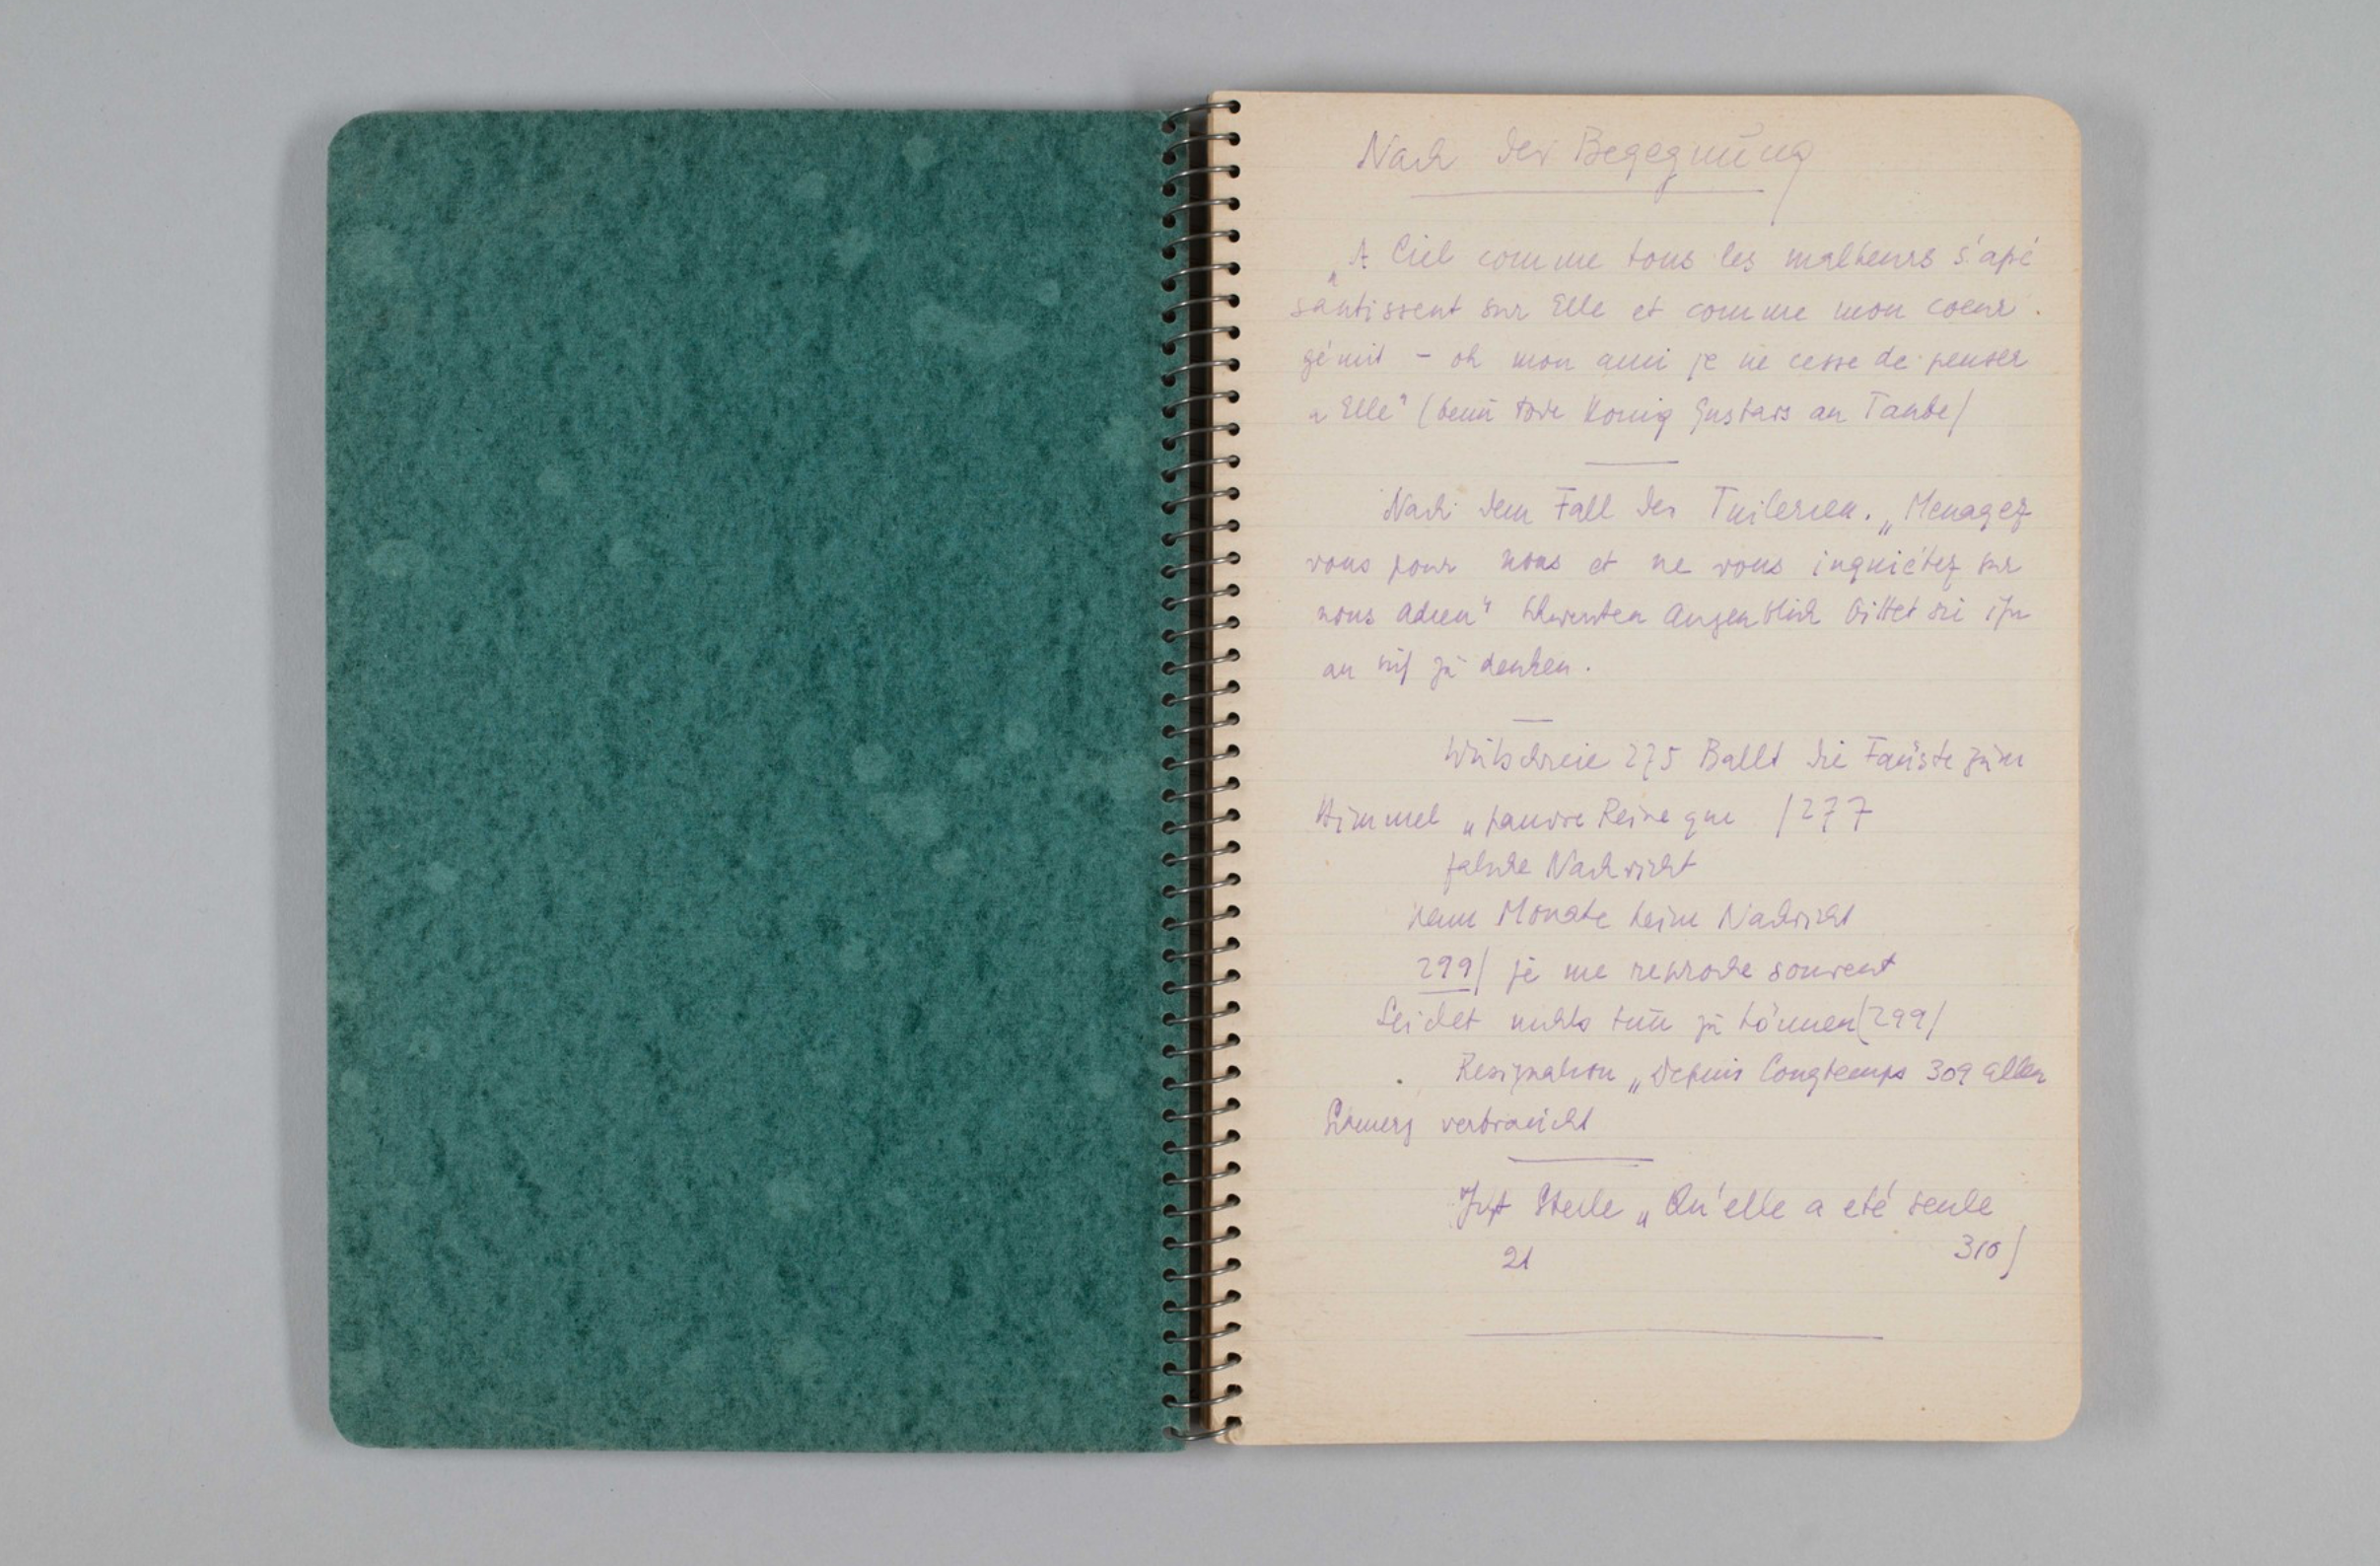 Nach der Begegnung
„A Ciel comme tous les malheurs s'apé
santissent sur Elle et comme mon coeur
gémit - oh mon ami je ne cesse de penser
a Elle" (beim Tode König Gustavs an Taube)
Nach dem Fall der Tuilerien. „Menagez
vous pour nous et ne vous inquiétez sur
nous adieu" Schwersten Augenblick bittet sie ihn
an sich zu denken.
Wutschreie 275 Ballt die Fäuste zum
Himmel „pauvre Reine que /277
falsche Nachricht
neun Monate keine Nachricht
299/ je me reproche souvent
Leidet nichts tun zu können (299/
Resignation „Depuis longtemps 309 allen
Schmerz verbraucht
Stelle „Qu'elle a eté seule
21 310/